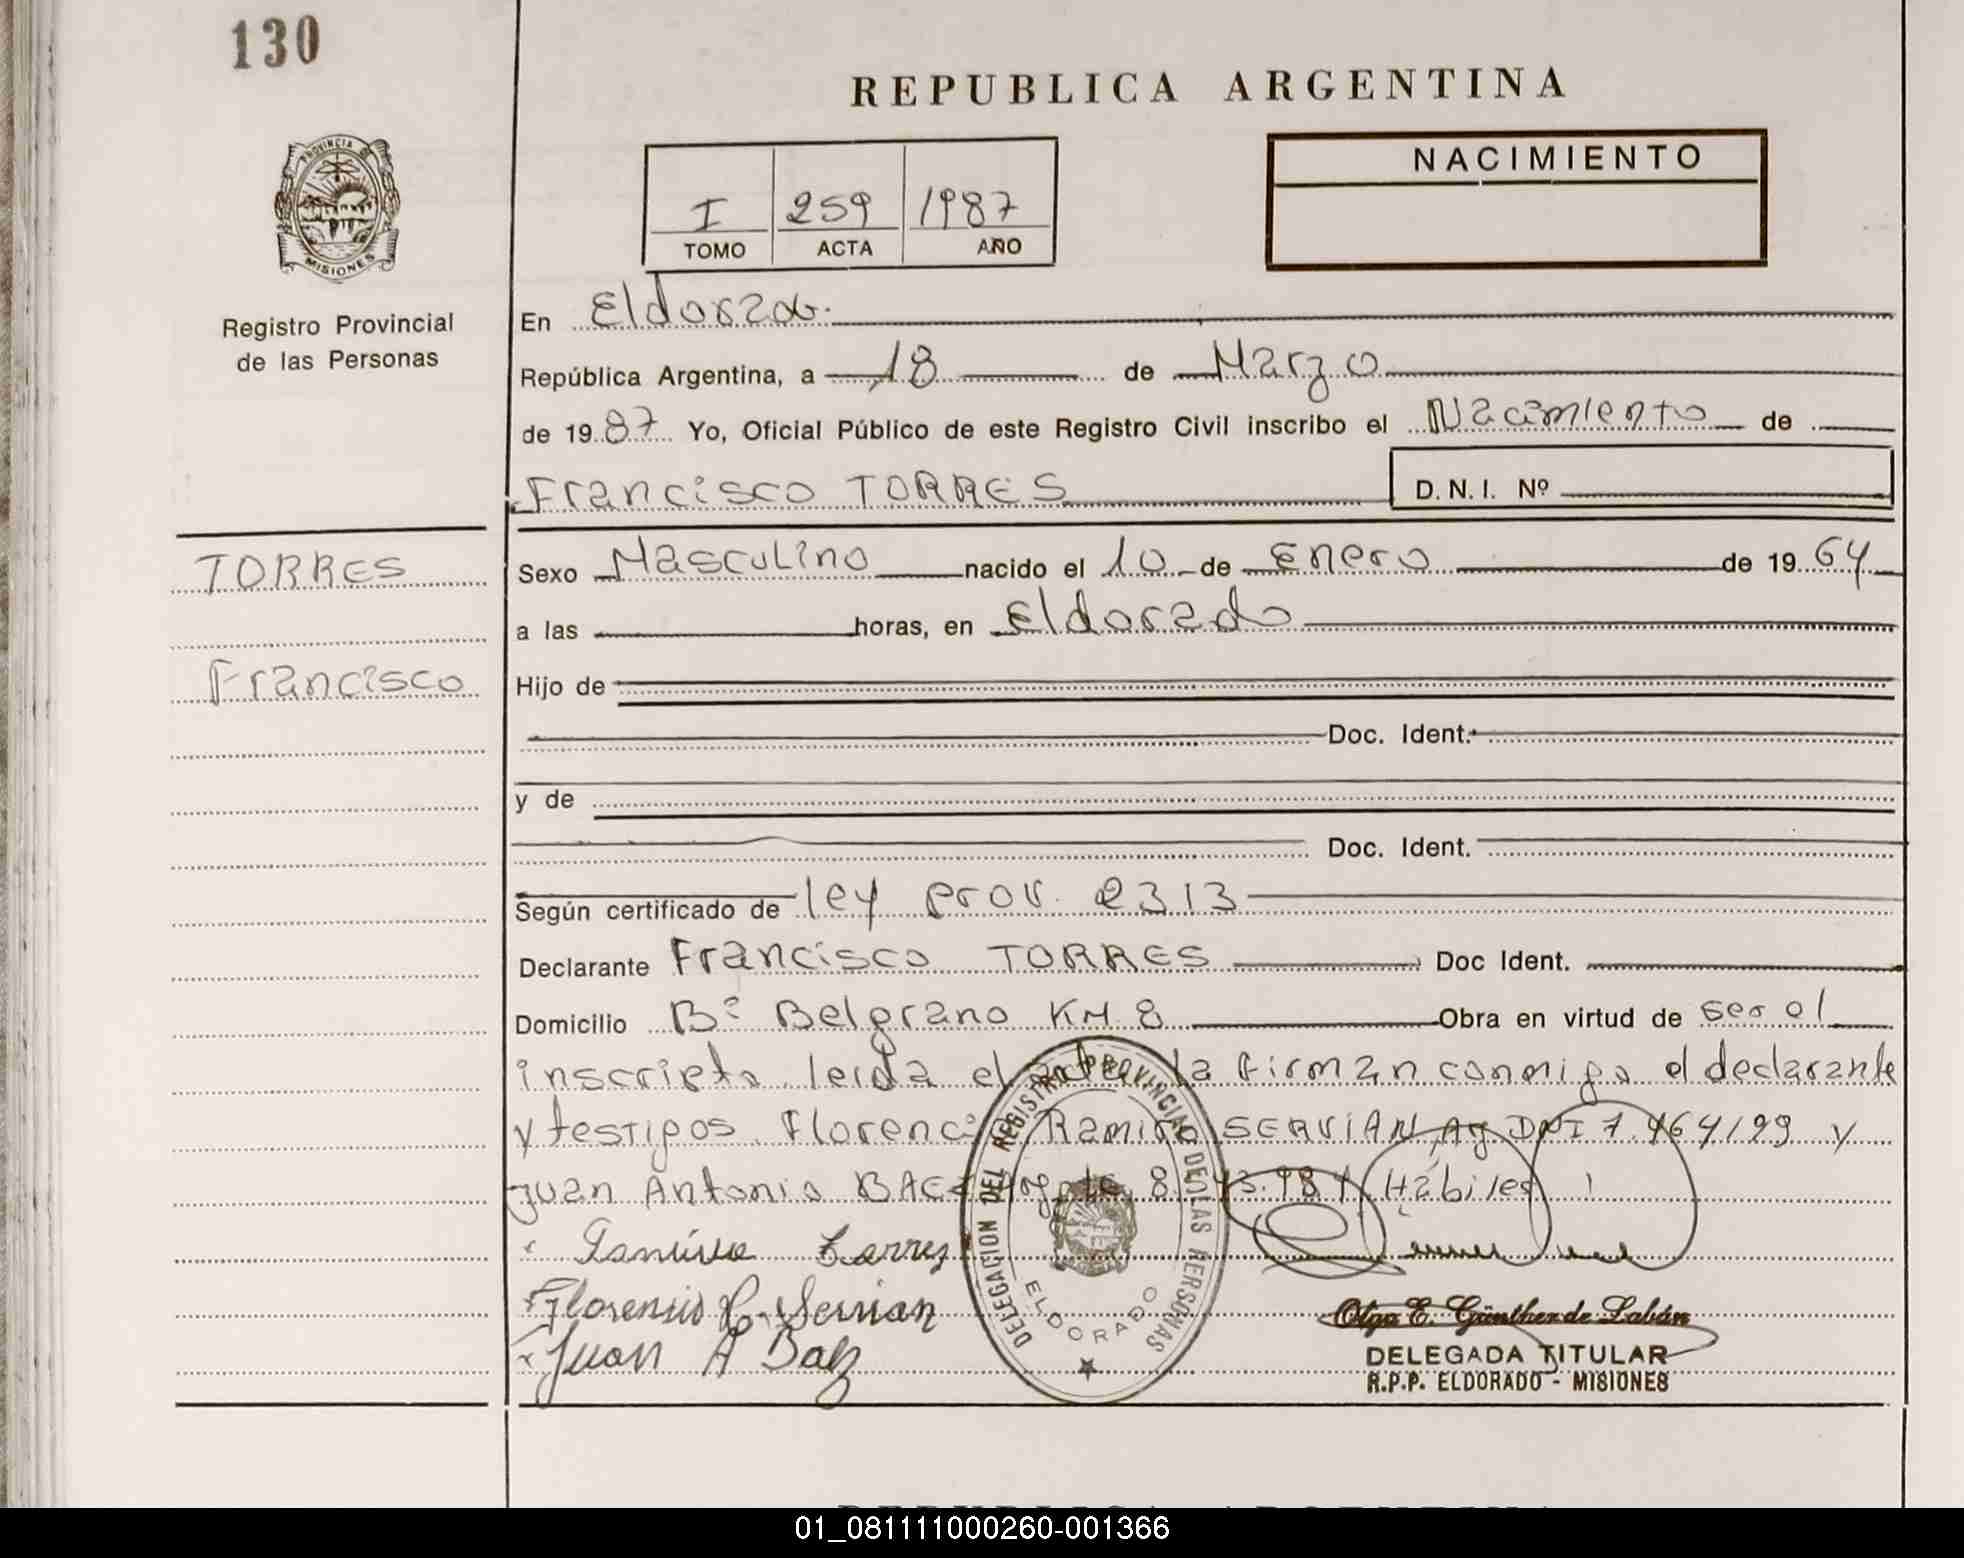 130
REPUBLICA ARGENTINA
PROVINCIA DE
MISIONES
Registro Provincial
de las Personas
I 259 1987
TOMO ACTA AÑO
NACIMIENTO
En Eldorado.
República Argentina, a 18 de Marzo
de 1987 Yo, Oficial Público de este Registro Civil inscribo el Nacimiento de
Francisco TORRES D.N.I. Nº
TORRES
Francisco
Sexo Masculino nacido el 10 de Enero de 1964
a las horas, en Eldorado
Hijo de
Doc. Ident.
y de
Doc. Ident.
Según certificado de ley prov. 2313
Declarante Francisco TORRES Doc Ident.
Domicilio Bº Belgrano KM 8 Obra en virtud de ser el
inscripto leida el acta la firman conmigo el declarante
y testigos Florencio Ramiro SERVIAN Arg DNI 7.464199 y
Juan Antonio BAEZ 8. Hábiles
Torres
Florensio R. Servian
Juan A Baez
DELEGACION DEL REGISTRO PROVINCIAL DE LAS PERSONAS
ELDORADO
Olga E. Günther de Labán
DELEGADA TITULAR
R.P.P. ELDORADO - MISIONES
01_081111000260-001366